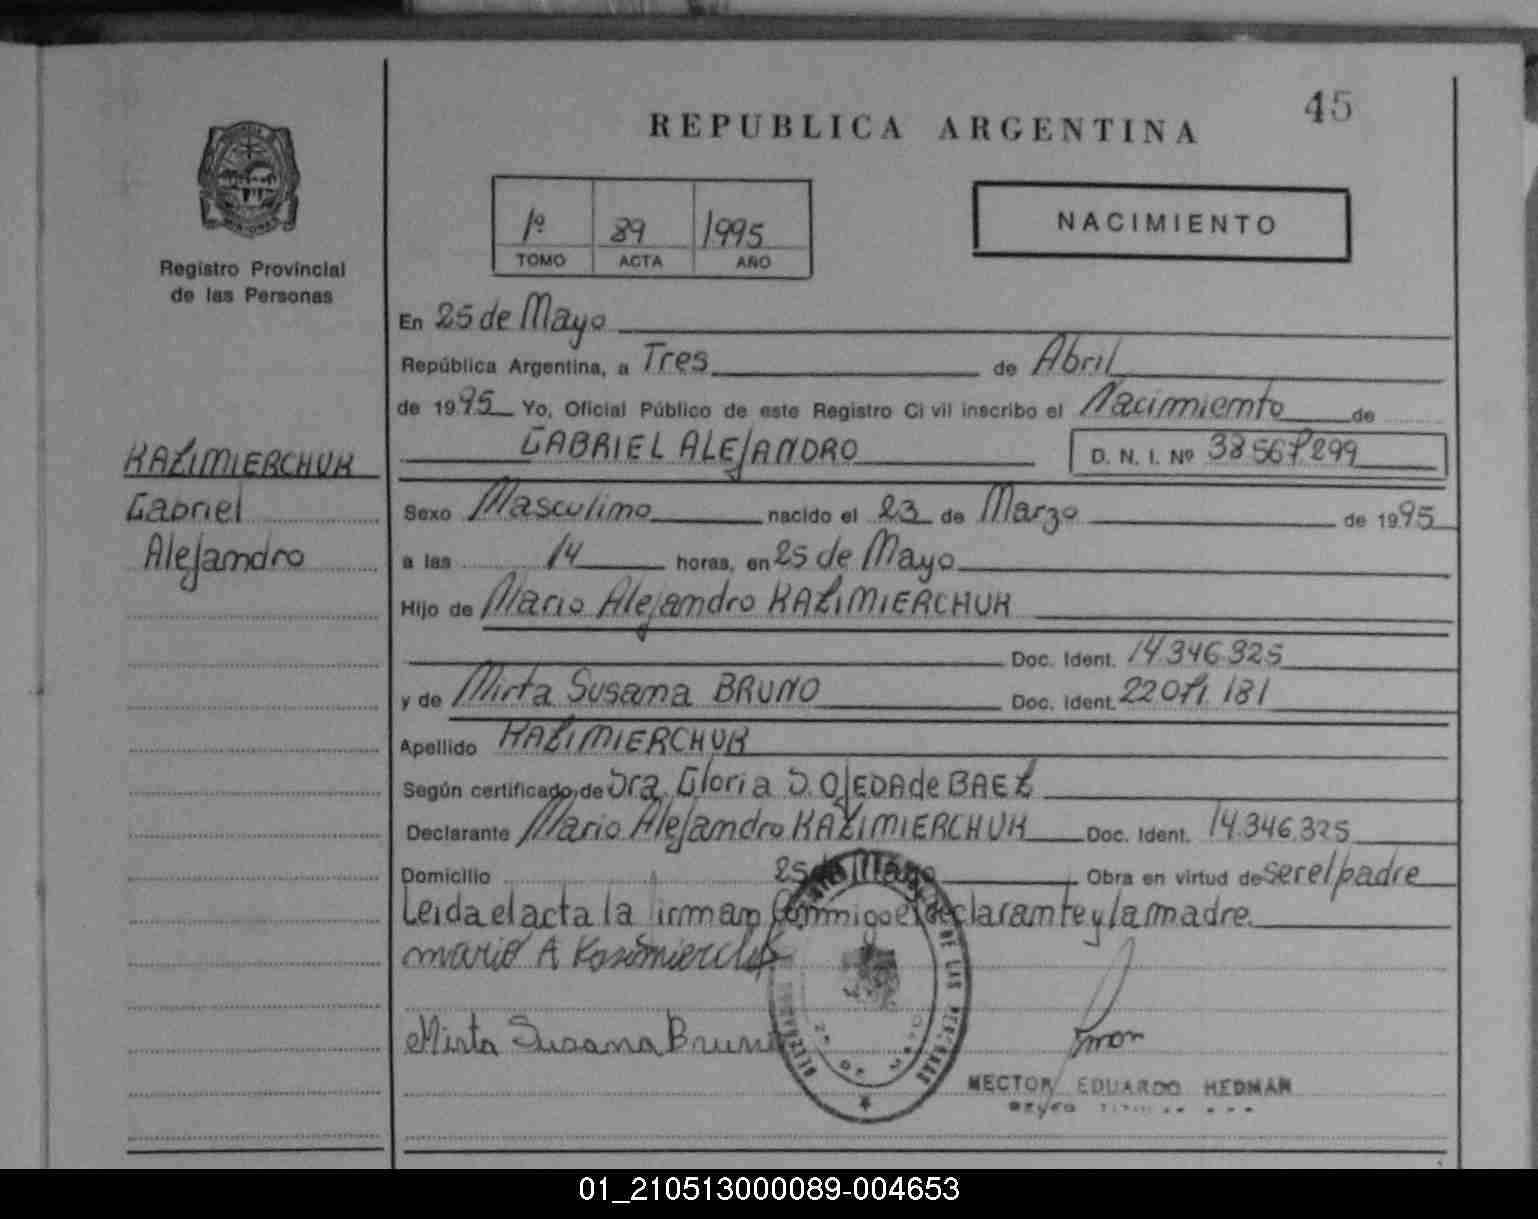 45
REPUBLICA ARGENTINA
1º 89 1995
TOMO ACTA AÑO
NACIMIENTO
Registro Provincial
de las Personas
En 25 de Mayo
República Argentina, a Tres de Abril
de 1995 Yo, Oficial Público de este Registro Civil inscribo el Nacimiento de
GABRIEL ALEJANDRO D. N. I. Nº 38567299
KAZIMIERCHUK
Gabriel
Alejandro
Sexo Masculino nacido el 23 de Marzo de 1995
a las 14 horas, en 25 de Mayo
Hijo de Mario Alejandro KAZIMIERCHUK
Doc. Ident. 14.346.325
y de Mirta Susana BRUNO Doc. Ident. 22071.181
Apellido KAZIMIERCHUK
Según certificado de Sra. Gloria S. OJEDA de BAEZ
Declarante Mario Alejandro KAZIMIERCHUK Doc. Ident. 14.346.325
Domicilio 25 de Mayo Obra en virtud de ser el padre
Leida el acta la firman conmigo el declarante y la madre.
Mario A Kazimierchuk
Mirta Susana Bruno
DE LAS PERSONAS
25 DE MAYO
HECTOR EDUARDO HEDMAN
01_210513000089-004653